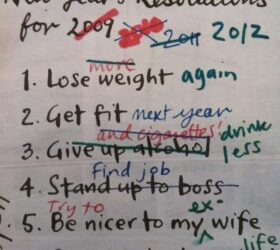 New Year's Resolutions
for 2009 2011 2012
more
1. Lose weight again
2. Get fit next year
and cigarettes! drink
3. Give up alcohol less
Find job
4. Stand up to boss
Try to ex-
5. Be nicer to my wife
life